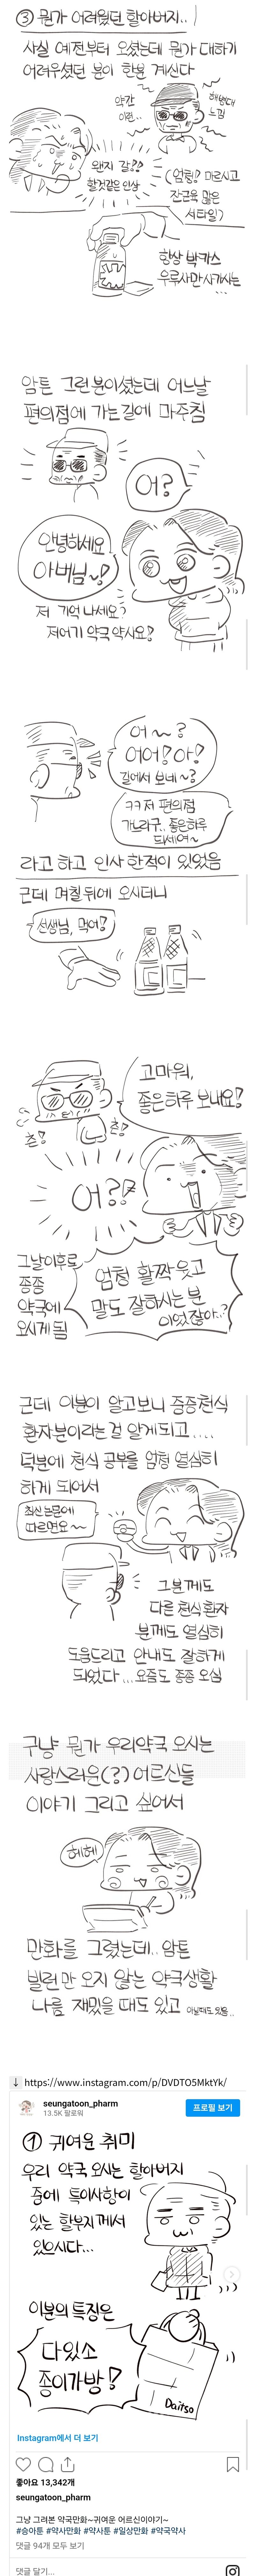 ③ 뭔가 어려웠던 할아버지..
사실 예전부터 오셨는데 뭔가 대하기
어려우셨던 분이 한분 계신다
약간
이런..
해병대
느낌
왠지 갈!!
할것같은 인상
(엄청 마르시고
잔근육 많은
서타일)
항상 박카스
우루사만 사가시는
...
암튼 그런분이셨는데 어느날
편의점에 가는길에 마주침
어?
안녕하세요
아버님~!
저 기억 나세요?
저어기 약국 약사요!
어~?
어어!아!
길에서 보네~?
ㅋㅋ저 편의점
가느라구.. 좋은하루
되세여~
라고 하고 인사 한적이 있었음
근데 며칠뒤에 오시더니
선생님, 먹어!
고마워,
좋은하루 보내요!
츤!
츤!
어?!
그날이후로
종종
약국에
오시게됨
엄청 활짝 웃고
말도 잘하시는 분
이었잖아..?
근데 이분이 알고보니 중증천식
환자분이라는걸 알게되고....
덕분에 천식 공부를 엄청 열심히
하게 되어서
최신논문에
따르면요~~
그분께도
다른 천식환자
분께도 열심히
도움드리고 안내도 잘하게
되었다... 요즘도 종종 오심
구냥 뭔가 우리약국 오시는
사랑스러운(?) 어르신들
이야기 그리고 싶어서
헤헤
만화를 그렸는데.. 암튼
빌런만 오지 않는 약국생활
나름 재밌을 때도 있고 아닐때도 있음..
↓ https://www.instagram.com/p/DVDTO5MktYk/
seungatoon_pharm
13.5K 팔로워
프로필 보기
① 귀여운 취미
우리 약국 오시는 할아버지
중에 특이사항이
있는 할부지께서
있으시다...
이분의 특징은
다있소
종이가방!
Daitso
Instagram에서 더 보기
좋아요 13,342개
seungatoon_pharm
그냥 그려본 약국만화~귀여운 어르신이야기~
#승아툰 #약사만화 #약사툰 #일상만화 #약국약사
댓글 94개 모두 보기
댓글 달기...